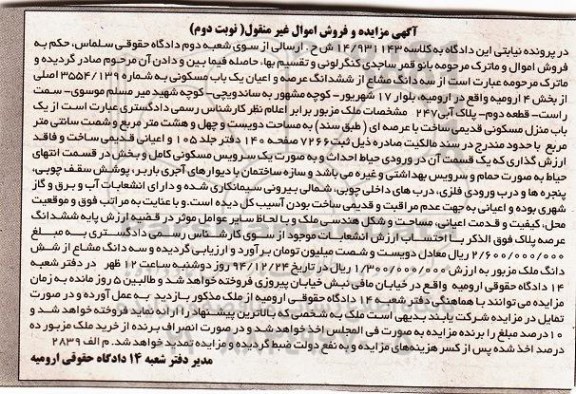 آگهی مزایده و فروش اموال غیر منقول( نوبت دوم)
در پرونده نیابتی این دادگاه به کلاسه ۱۴/۹۳۱۱۴۳ ش ح . ارسالی از سوی شعبه دوم دادگاه حقوقی سلماس، حکم به
فروش اموال و ماترک مرحومه بانو قمر ساجدی کنگرلوئی و تقسیم بها، حاصله فیما بین و دادن آن مرحوم صادر گردیده و
ماترک مرحومه عبارت است از سه دانگ مشاع از ششدانگ عرصه و اعیان یک باب مسکونی به شماره ۳۵۵۴/۱۳۹ اصلی
از بخش ۴ ارومیه واقع در ارومیه، بلوار ۱۷ شهریور- کوچه مشهور به ساندویچی- کوچه شهید میر مسلم موسوی- سمت
راست- قطعه دوم- پلاک آبی ۲۴۷ مشخصات ملک مزبور برابر اعلام نظر کارشناس رسمی دادگستری عبارت است از یک
باب منزل مسکونی قدیمی ساخت با عرصه ای ( طبق سند) به مساحت دویست و چهل و هشت متر مربع و شصت سانتی متر
مربع با حدود مندرج در سند مالکیت صادره ذیل ثبت ۷۲۶۶ صفحه ۱۴۰ دفتر جلد ۱۰۵ و اعیانی قدیمی ساخت و فاقد
ارزش گذاری که یک قسمت آن در ورودی حیاط احداث و به صورت یک سرویس مسکونی کامل و بخش در قسمت انتهای
حیاط به صورت حمام و سرویس بهداشتی و غیره می باشد و سازه ساختمان با دیوارهای آجری باربر، پوشش سقف چوبی،
پنجره ها و درب ورودی فلزی، درب های داخلی چوبی، شمالی بیرونی سیمانکاری شده و دارای انشعابات آب و برق و گاز
شهری بوده و اعیانی به جهت عدم مراقبت و قدیمی ساخت بودن آسیب کل دیده است. و با عنایت به مراتب فوق و موقعیت
محل، کیفیت و قدمت اعیانی، مساحت و شکل هندسی ملک و با لحاظ سایر عوامل موثر در قضیه ارزش پایه ششدانگ
عرصه پلاک فوق الذکر با احتساب ارزش انشعابات موجود از سوی کارشناس رسمی دادگستری به مبلغ
۲/۶۰۰/۰۰۰/۰۰۰ ریال معادل دویست و شصت میلیون تومان برآورد و ارزیابی گردیده و سه دانگ مشاع از شش
دانگ ملک مزبور به ارزش ۱/۳۰۰/۰۰۰/۰۰۰ ریال در تاریخ ۹۴/۱۲/۲۴ روز دوشنبه ساعت ۱۲ ظهر در دفتر شعبه
۱۴ دادگاه حقوقی ارومیه واقع در خیابان مافی نبش خیابان پیروزی فروخته خواهد شد و طالبین ۵ روز مانده به زمان
مزایده می توانند با هماهنگی دفتر شعبه ۱۴ دادگاه حقوقی ارومیه از ملک مذکور بازدید به عمل آورده و در صورت
تمایل در مزایده شرکت یابند بدیهی است ملک به شخصی که بالاترین پیشنهاد را ارائه نماید فروخته خواهد شد و
۱۰ درصد مبلغ را برنده مزایده به صورت فی المجلس اخذ خواهد شد و در صورت انصراف برنده از خرید ملک مزبور ده
درصد اخذ شده پس از کسر هزینه‌های مزایده و به نفع دولت ضبط گردیده و مزایده تمدید خواهد شد. م الف ۲۸۳۹
مدیر دفتر شعبه ۱۴ دادگاه حقوقی ارومیه